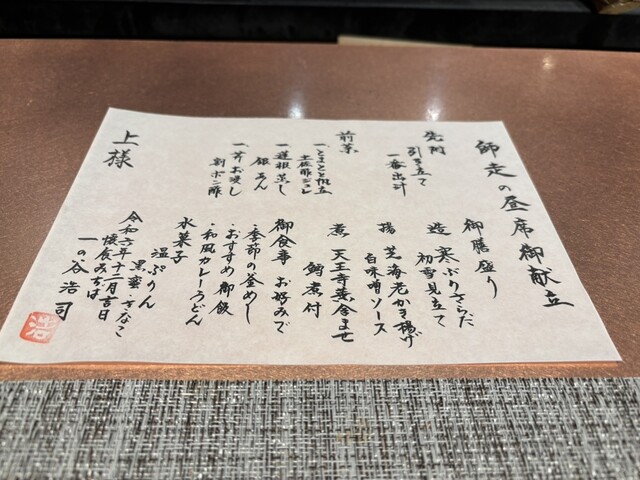 師走の昼席御献立
先附
引き立て
一番出汁
前菜
一、とまとと帆立
土佐酢ジュレ
一、蓮根蒸し
銀あん
一、芹お浸し
割ポン酢
上様
御膳盛り
造 寒ぶりさらだ
初雪見立て
揚 芝海老かき揚げ
白味噌ソース
煮 天王寺蕪含ませ
鯛煮付
御食事 お好みで
・季節の釜めし
・おすすめ御飯
・和風カレーうどん
水菓子
温ぷりん
黒蜜・きなこ
令和六年十二月吉日
懐食みちば
一の谷浩司